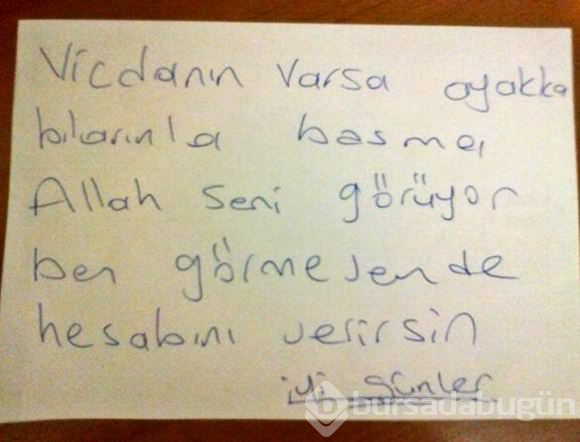 Vicdanın varsa ayakka
bılarınla basma
Allah seni görüyor
ben görmesende
hesabını verirsin
iyi günler
bursadabugün